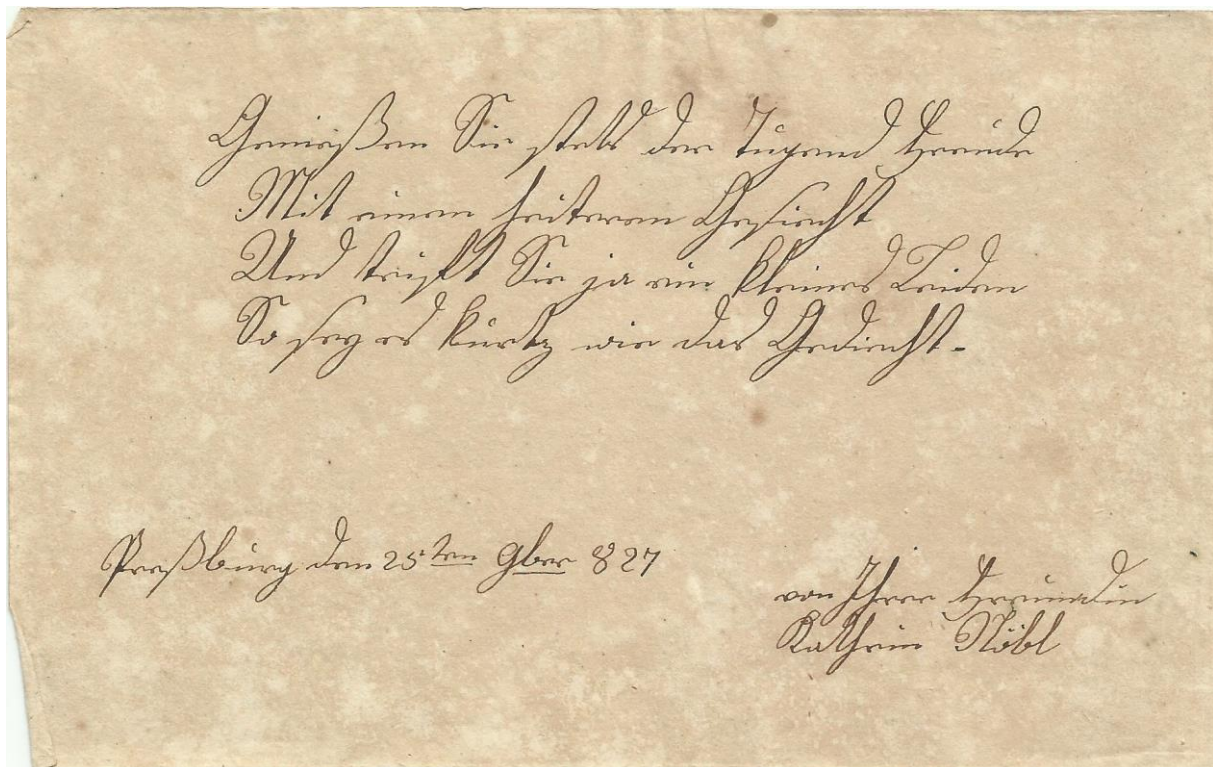 Genießen Sie stets der Tugend Freude
Mit einem heiterem Gesiecht
Und trifft Sie ja ein kleines Leiden
So sey es kurtz wie das Gediecht.
Preßburg den 25ten 9ber 827
von Ihrer Freundin
Kathrin Nöbl